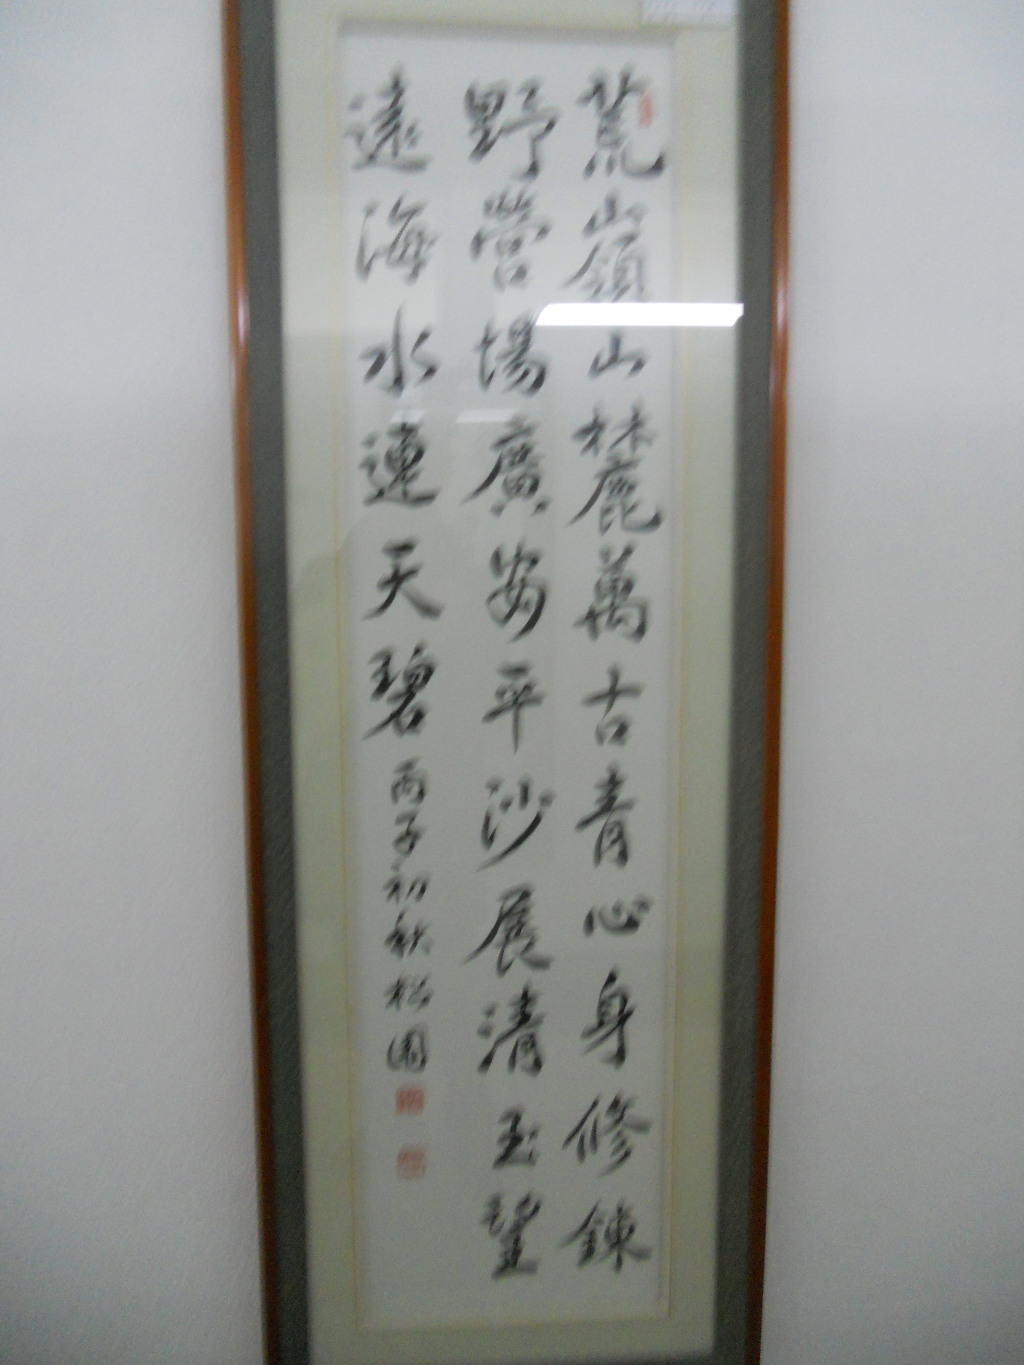 荒山嶺山麓萬古青心身修鍊
野營場廣安平沙展清玉望
遠海水連天碧丙子初秋松園